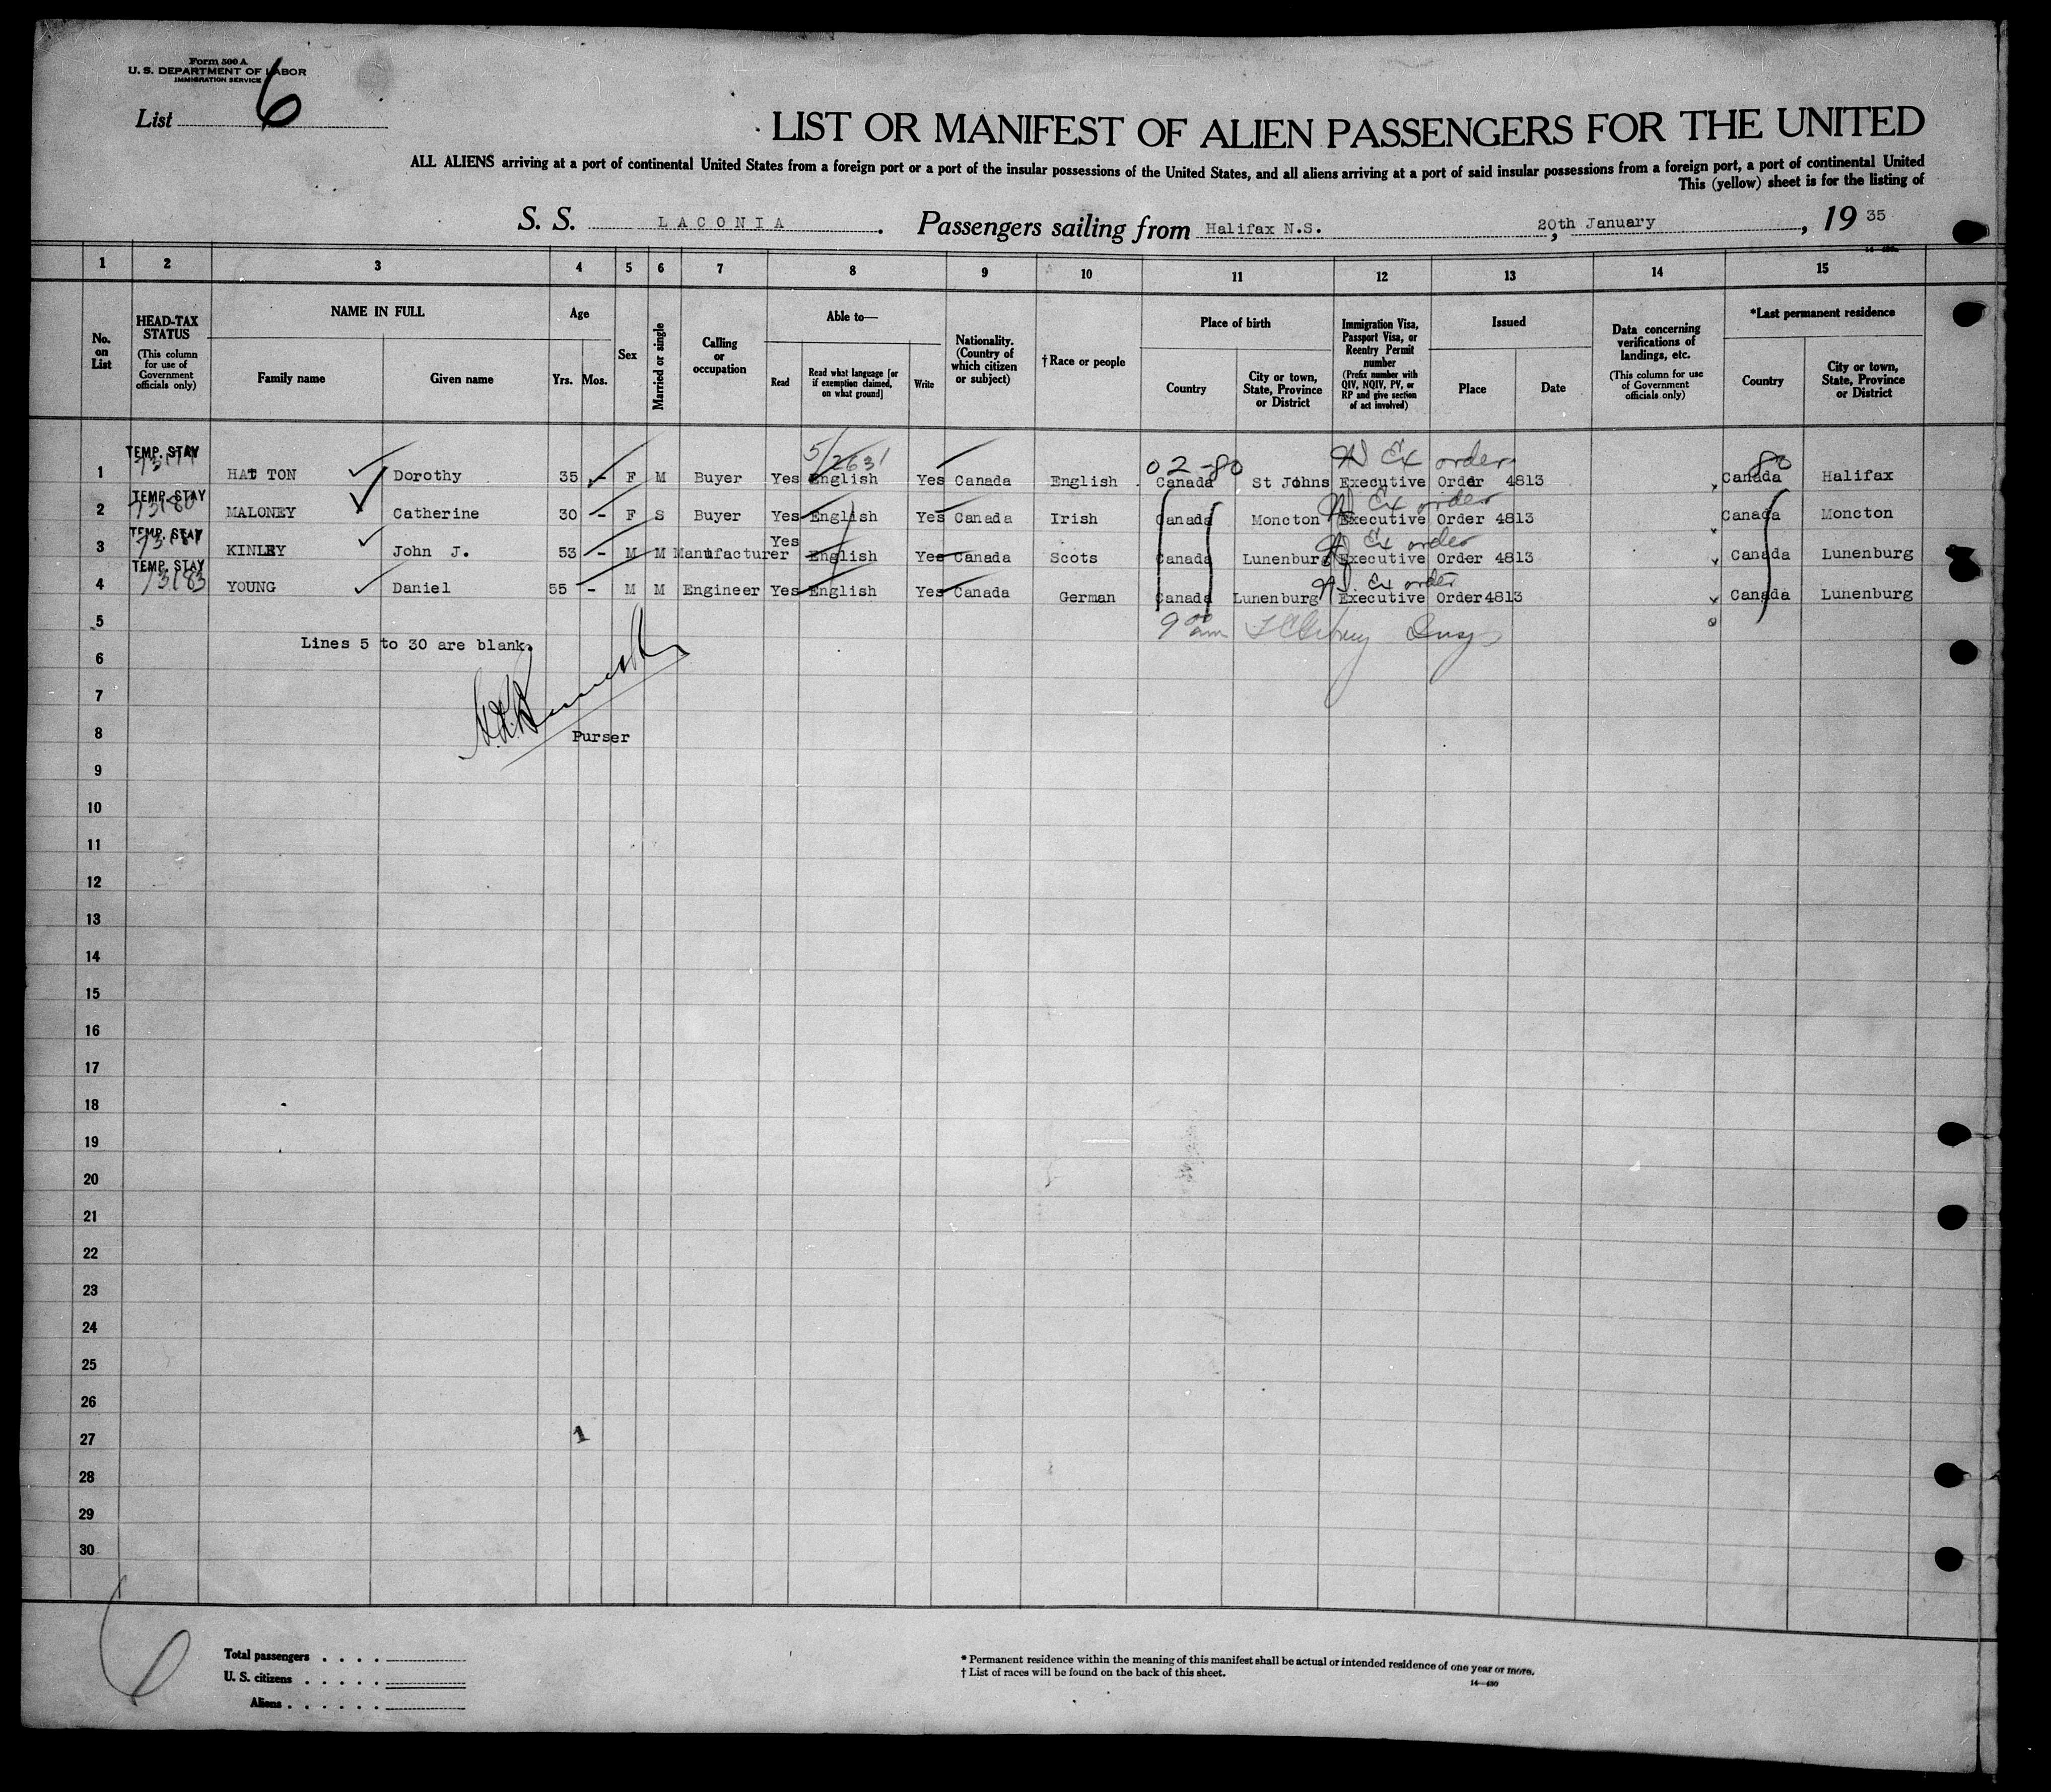 Form 500 A
U. S. DEPARTMENT OF LABOR
IMMIGRATION SERVICE
List 6
LIST OR MANIFEST OF ALIEN PASSENGERS FOR THE UNITED
ALL ALIENS arriving at a port of continental United States from a foreign port or a port of the insular possessions of the United States, and all aliens arriving at a port of said insular possessions from a foreign port, a port of continental United
This (yellow) sheet is for the listing of
S. S. LACONIA. Passengers sailing from Halifax N.S. 20th, January, 19 35
1 2 3 4 5 6 7 8 9 10 11 12 13 14 15
No. on List
HEAD-TAX STATUS (This column for use of Government officials only)
NAME IN FULL
Family name Given name
Age
Yrs. Mos.
Sex
Married or single
Calling or occupation
Able to—
Read Read what language [or if exemption claimed, on what ground] Write
Nationality. (Country of which citizen or subject)
† Race or people
Place of birth
Country City or town, State, Province or District
Immigration Visa, Passport Visa, or Reentry Permit number (Prefix number with QIV, NQIV, PV, or RP and give section of act involved)
Issued
Place Date
Data concerning verifications of landings, etc. (This column for use of Government officials only)
*Last permanent residence
Country City or town, State, Province or District
5/2631 02-80 Ex order 80
1 TEMP. STAY HATTON Dorothy 35 - F M Buyer Yes English Yes Canada English Canada St Johns Executive Order 4813 Canada Halifax
Ex order
2 TEMP. STAY 73180 MALONEY Catherine 30 - F S Buyer Yes English Yes Canada Irish Canada Moncton Executive Order 4813 Canada Moncton
Ex order
3 TEMP. STAY KINLEY John J. 53 - M M Manufacturer Yes English Yes Canada Scots Canada Lunenburg Executive Order 4813 Canada Lunenburg
Ex order
4 TEMP. STAY 73183 YOUNG Daniel 55 - M M Engineer Yes English Yes Canada German Canada Lunenburg Executive Order 4813 Canada Lunenburg
5 9 00 am
Lines 5 to 30 are blank.
6
7
8 Purser
9
10
11
12
13
14
15
16
17
18
19
20
21
22
23
24
25
26
27 1
28
29
30
6
Total passengers . . . .
U. S. citizens . . . . .
Aliens . . . . . .
* Permanent residence within the meaning of this manifest shall be actual or intended residence of one year or more.
† List of races will be found on the back of this sheet.
14—430